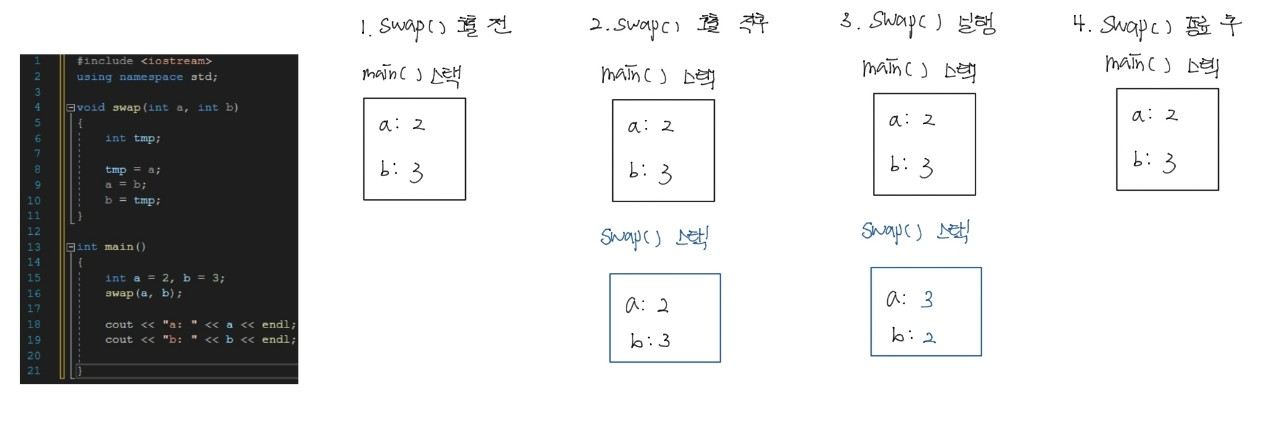 1 #include <iostream>
2 using namespace std;
3
4 void swap(int a, int b)
5 {
6 int tmp;
7
8 tmp = a;
9 a = b;
10 b = tmp;
11 }
12
13 int main()
14 {
15 int a = 2, b = 3;
16 swap(a, b);
17
18 cout << "a: " << a << endl;
19 cout << "b: " << b << endl;
20
21 }
1. Swap() 호출 전
main() 스택
a: 2
b: 3
2. Swap() 호출 직후
main() 스택
a: 2
b: 3
Swap() 스택
a: 2
b: 3
3. Swap() 실행
main() 스택
a: 2
b: 3
Swap() 스택
a: 3
b: 2
4. Swap() 종료 후
main() 스택
a: 2
b: 3